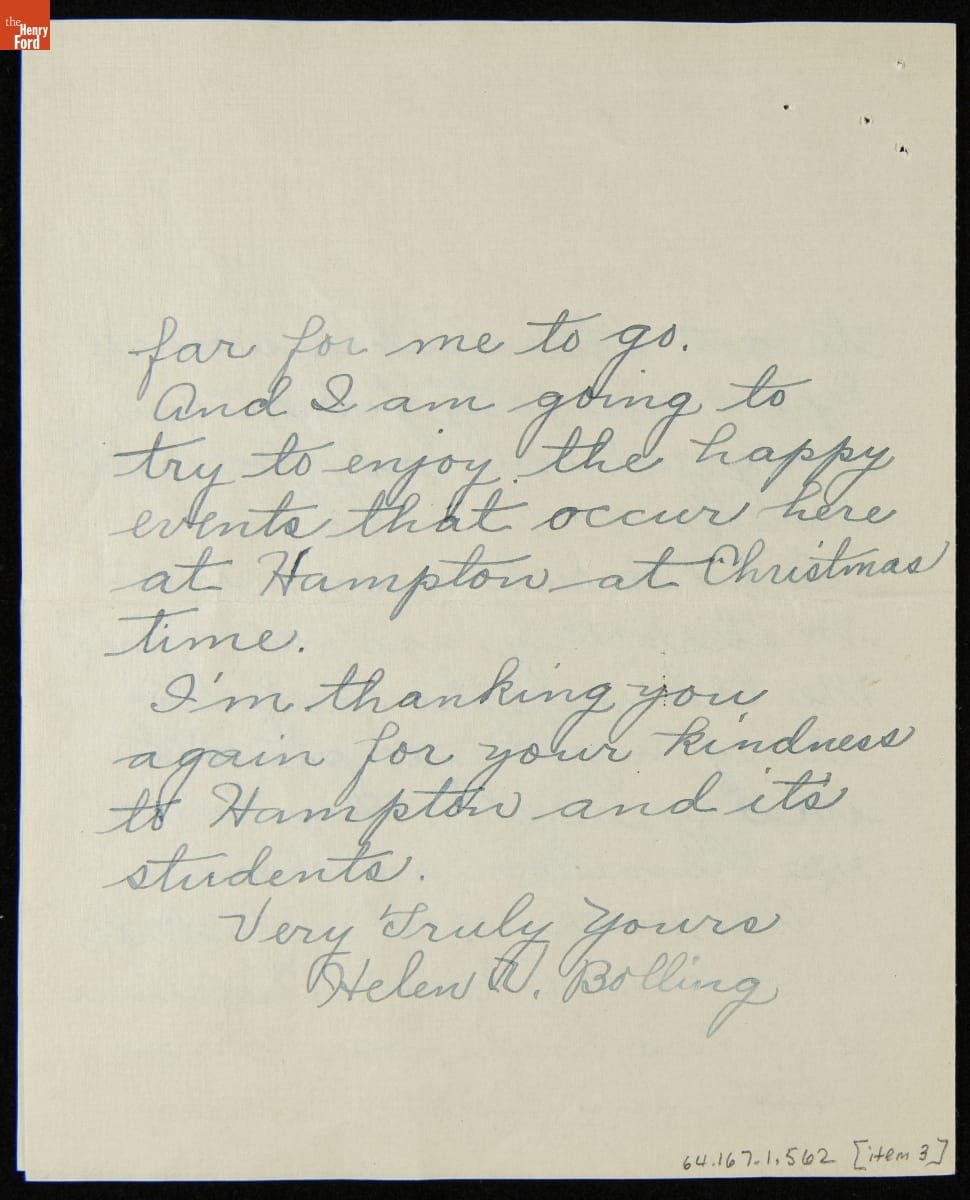 the
Henry
Ford
far for me to go.
And I am going to
try to enjoy the happy
events that occur here
at Hampton at Christmas
time.
I'm thanking you
again for your kindness
to Hampton and it's
students.
Very Truly Yours
Helen Bolling
64.167.1.562 [item 3]